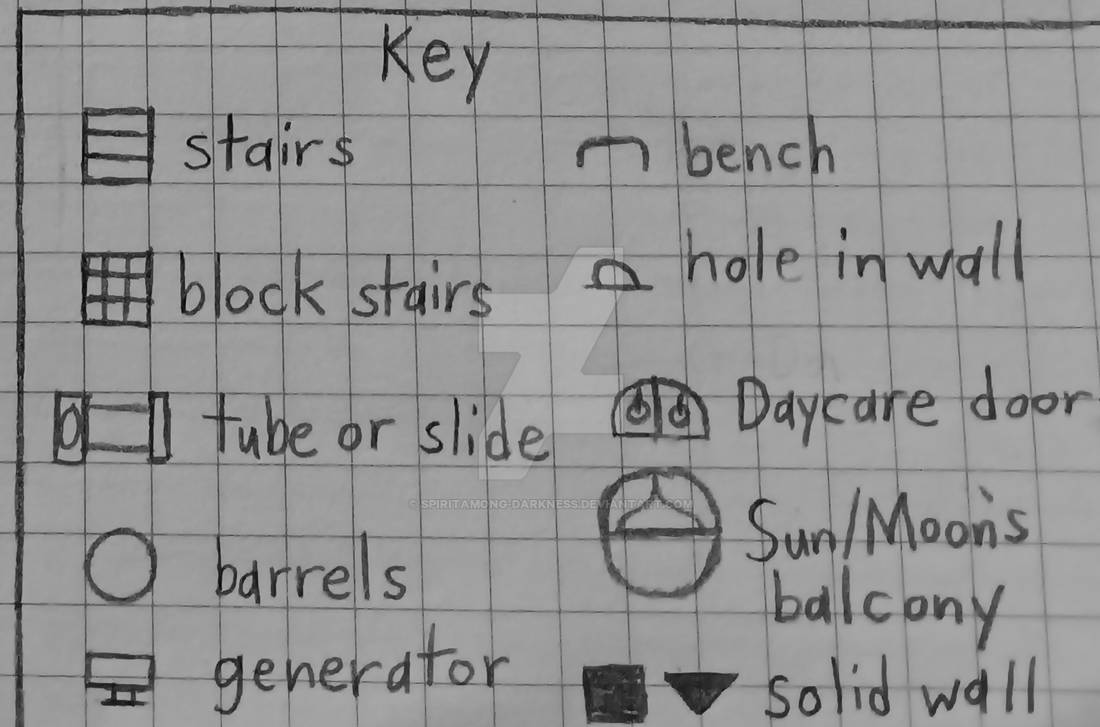 Key
stairs
block stairs
tube or slide
barrels
generator
bench
hole in wall
Daycare door
Sun/Moon's
balcony
solid wall
© SPIRITAMONG-DARKNESS.DEVIANTART.COM